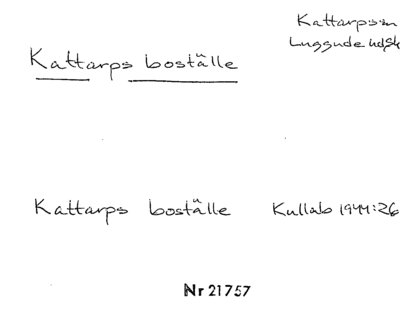 Kattarps sn
Luggude hd, Sk
Kattarps boställe
Kattarps boställe Kullab 1944:26
Nr 21757